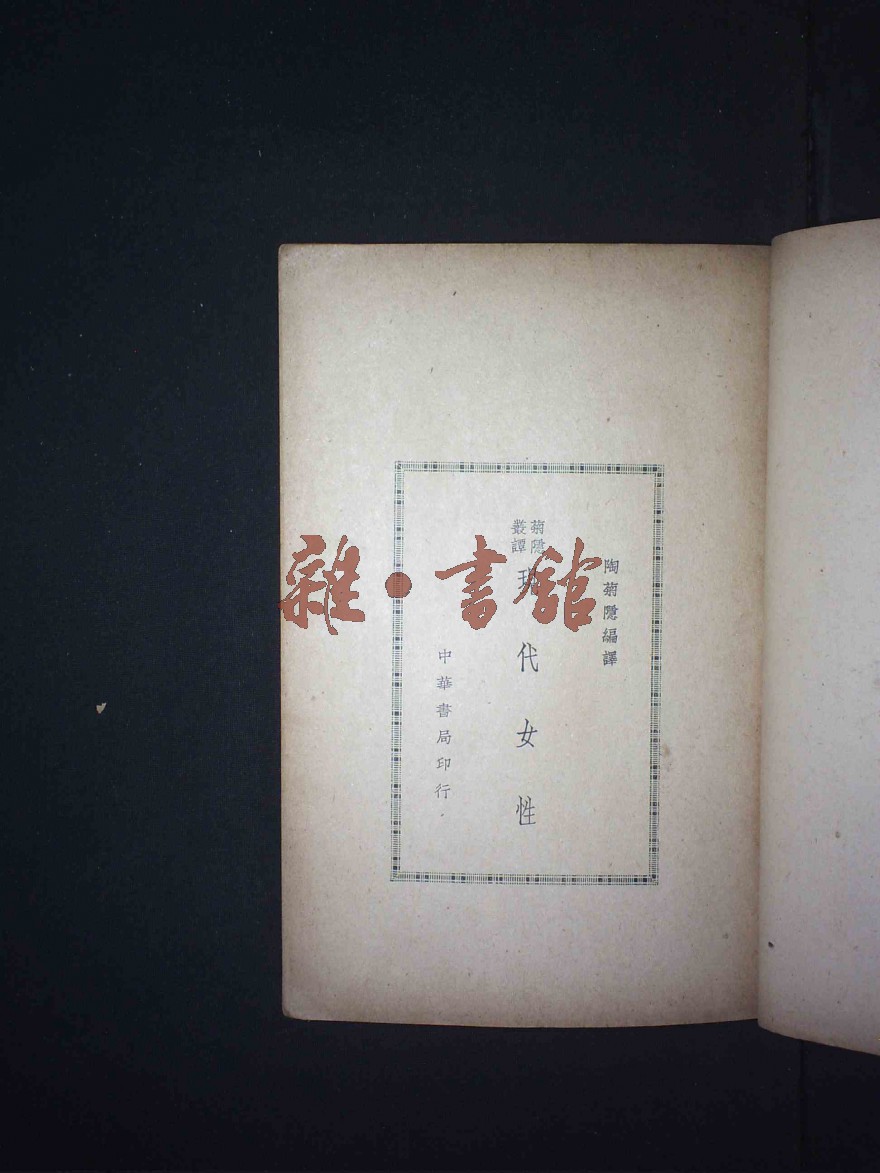 陶菊隱編譯
菊隱
叢譚
現代女性
中華書局印行
雜·書館